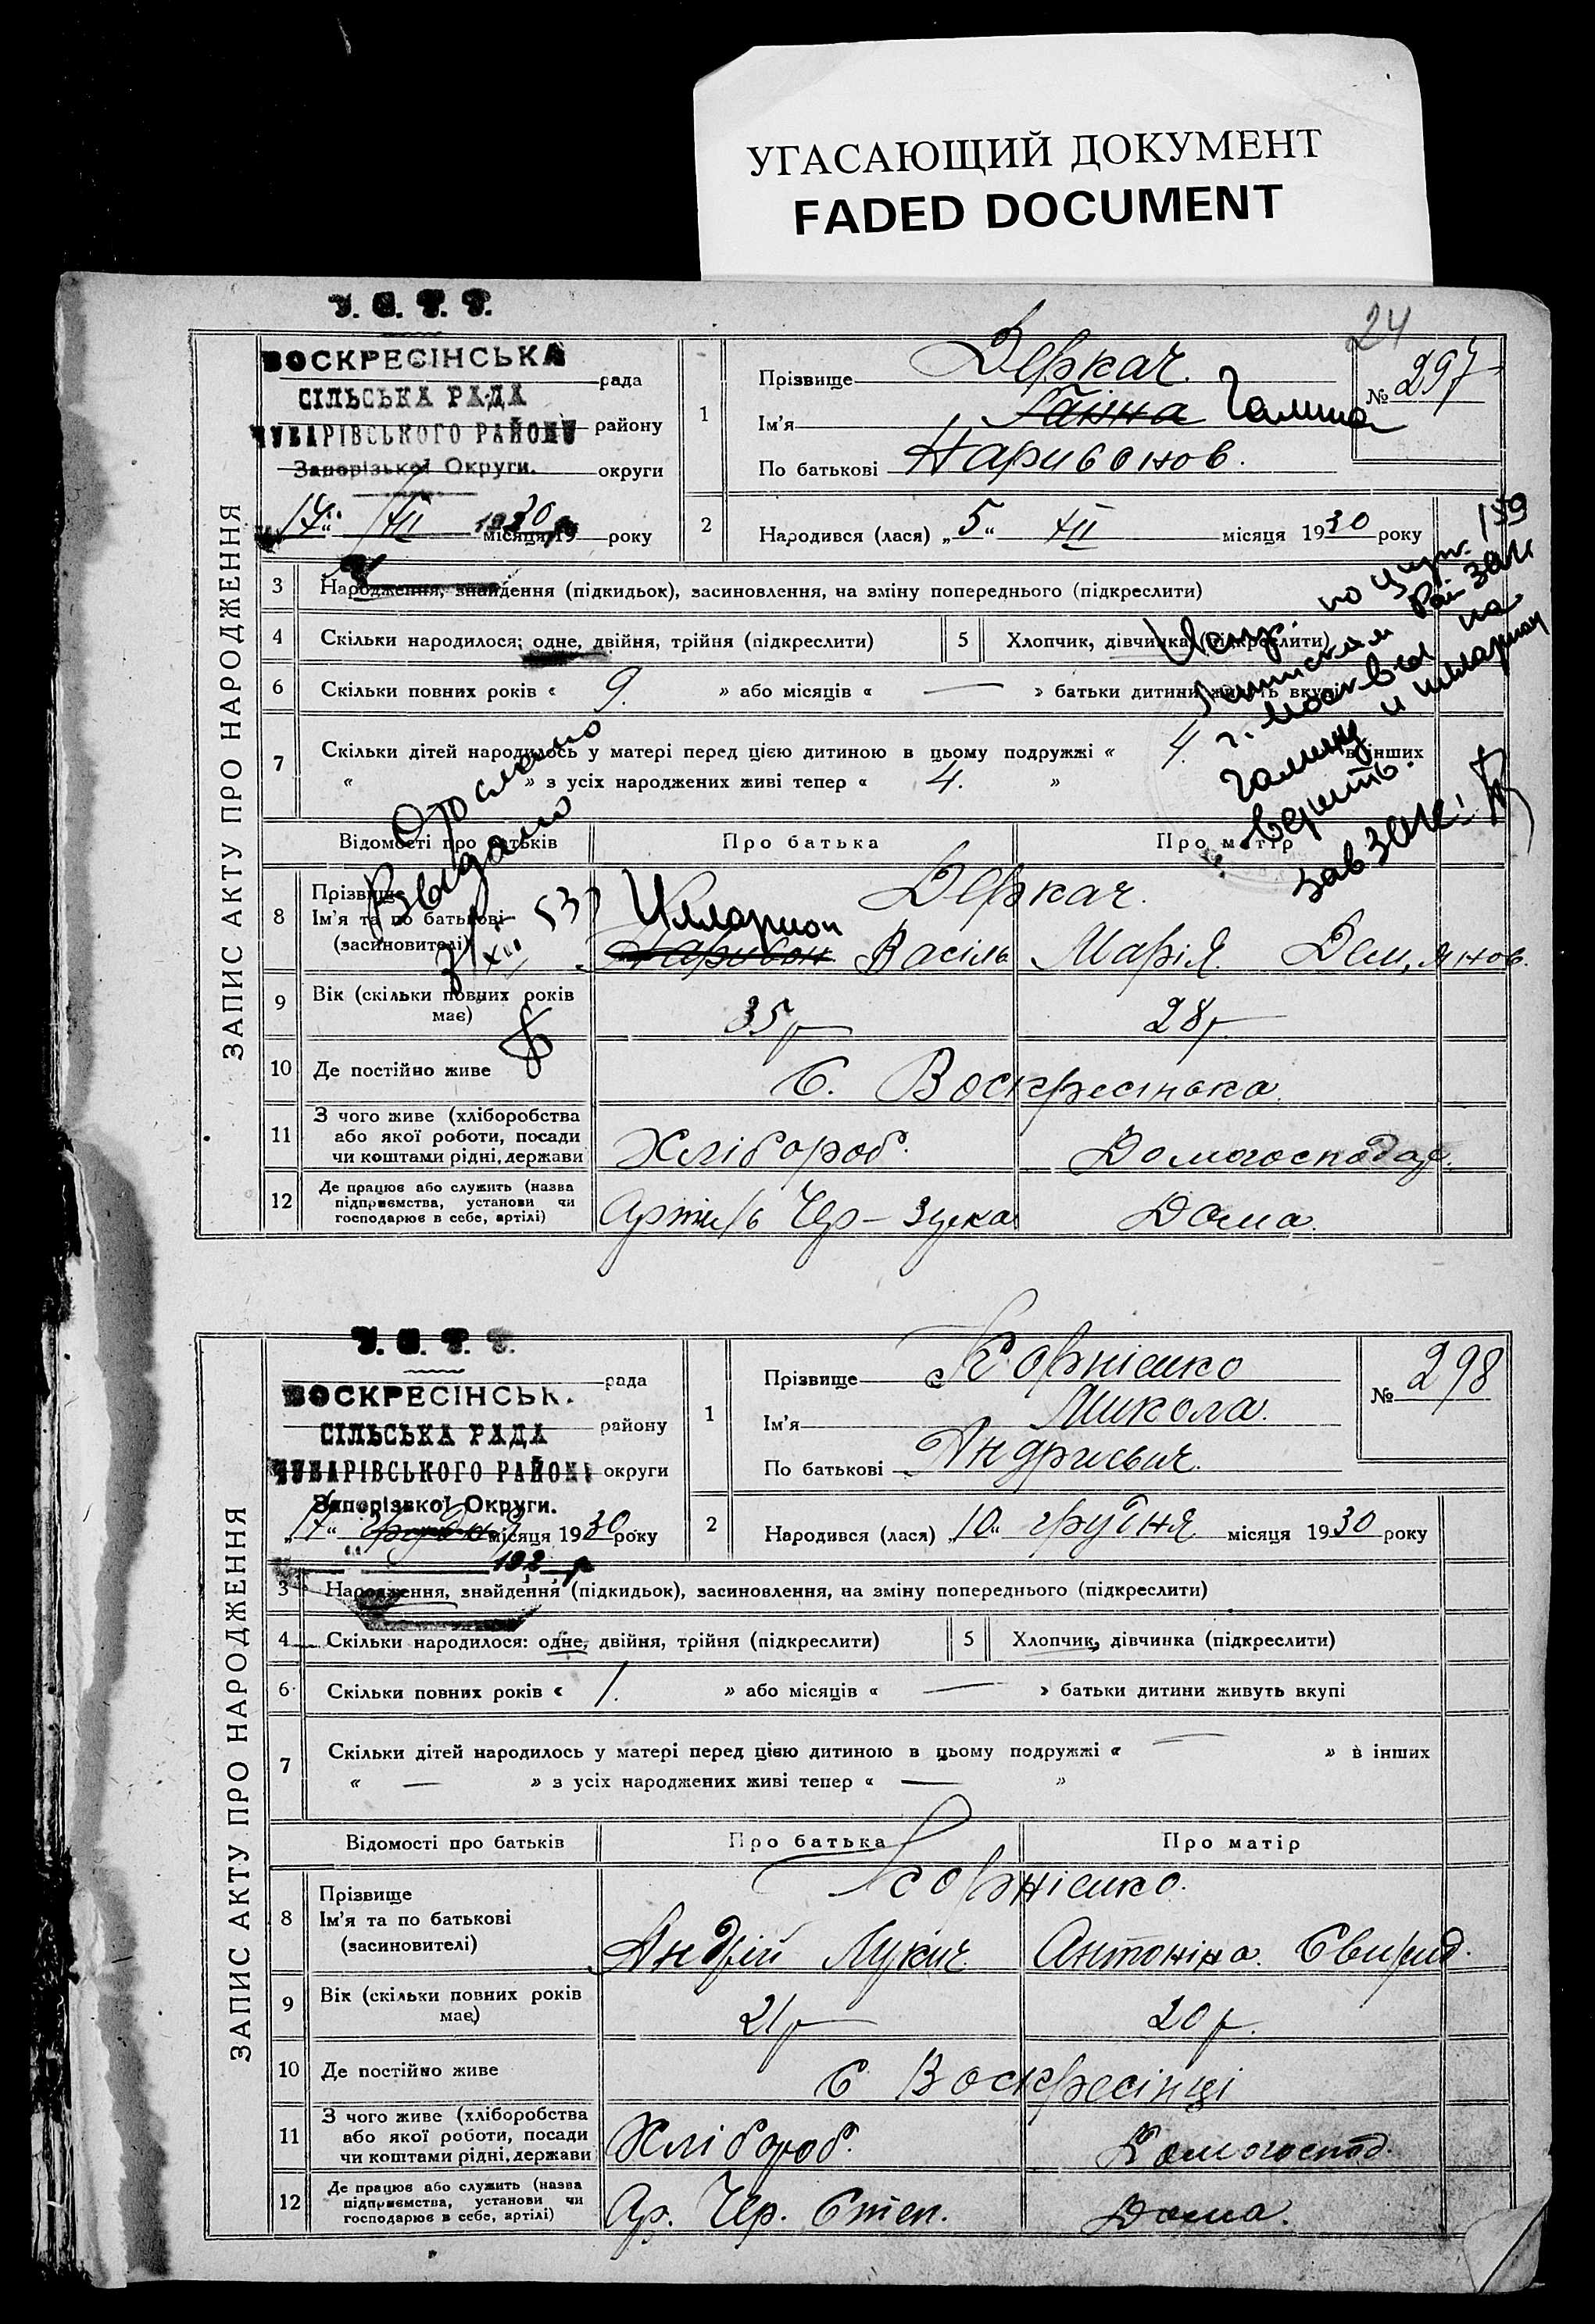 УГАСАЮЩИЙ ДОКУМЕНТ
FADED DOCUMENT
24
У. С. Т. Т.
ВОСКРЕСІНСЬКА рада
СІЛЬСЬКА РАДА
ЧУБАРІВСЬКОГО РАЙОНУ району
Запорізької Округи. округи
„17“ XII місяця 1930 року
ЗАПИС АКТУ ПРО НАРОДЖЕННЯ
1 Прізвище Деркач.
Ім'я Ганна Галина
По батькові Наривонов.
№ 297
2 Народився (лася) „5“ XII місяця 1930 року
3 Народження, знайдення (підкидьок), засиновлення, на зміну попереднього (підкреслити)
4 Скільки народилося: одне, двійня, трійня (підкреслити)
5 Хлопчик, дівчинка (підкреслити)
6 Скільки повних років « 9. » або місяців « — » батьки дитини живуть вкупі
7 Скільки дітей народилось у матері перед цією дитиною в цьому подружжі « 4. » в інших
« » з усіх народжених живі тепер « 4. »
Испр. по цирк. 159
г. Москвы на
Галину и Илларион
верить.
зав загс:
Отослано
Выдано
XII 53
Відомості про батьків Про батька Про матір
8 Прізвище
Ім'я та по батькові
(засиновителі)
Деркач.
Илларион
Наривон Василь Марія Дем,янов.
9 Вік (скільки повних років має) 35 р 28 р
10 Де постійно живе С. Воскресінька.
11 З чого живе (хліборобства
або якої роботи, посади
чи коштами рідні, держави
Хлібороб. Домогосподар.
12 Де працює або служить (назва
підприємства, установи чи
господарює в себе, артілі)
Артиль Чер-зірка Дома.
У. С. Т. Т.
рада
ВОСКРЕСІНСЬК.
СІЛЬСЬКА РАДА району
ЧУБАРІВСЬКОГО РАЙОНУ округи
Запорізької Округи.
„17“ грудня місяця 1930 року
192 р
ЗАПИС АКТУ ПРО НАРОДЖЕННЯ
1 Прізвище Корнієнко
Ім'я Микола.
По батькові Андриевич.
№ 298
2 Народився (лася) „10“ грудня місяця 1930 року
3 Народження, знайдення (підкидьок), засиновлення, на зміну попереднього (підкреслити)
4 Скільки народилося: одне, двійня, трійня (підкреслити)
5 Хлопчик, дівчинка (підкреслити)
6 Скільки повних років « 1. » або місяців « — » батьки дитини живуть вкупі
7 Скільки дітей народилось у матері перед цією дитиною в цьому подружжі « — » в інших
« — » з усіх народжених живі тепер « — »
Відомості про батьків Про батька Про матір
8 Прізвище
Ім'я та по батькові
(засиновителі)
Корнієнко.
Андрій Лукич Антоніна. Свирид.
9 Вік (скільки повних років має) 21 р 20 р.
10 Де постійно живе С Воскресінці
11 З чого живе (хліборобства
або якої роботи, посади
чи коштами рідні, держави
Хлібороб. Домогоспод.
12 Де працює або служить (назва
підприємства, установи чи
господарює в себе, артілі)
Ар. Чер. Степ. Дома.